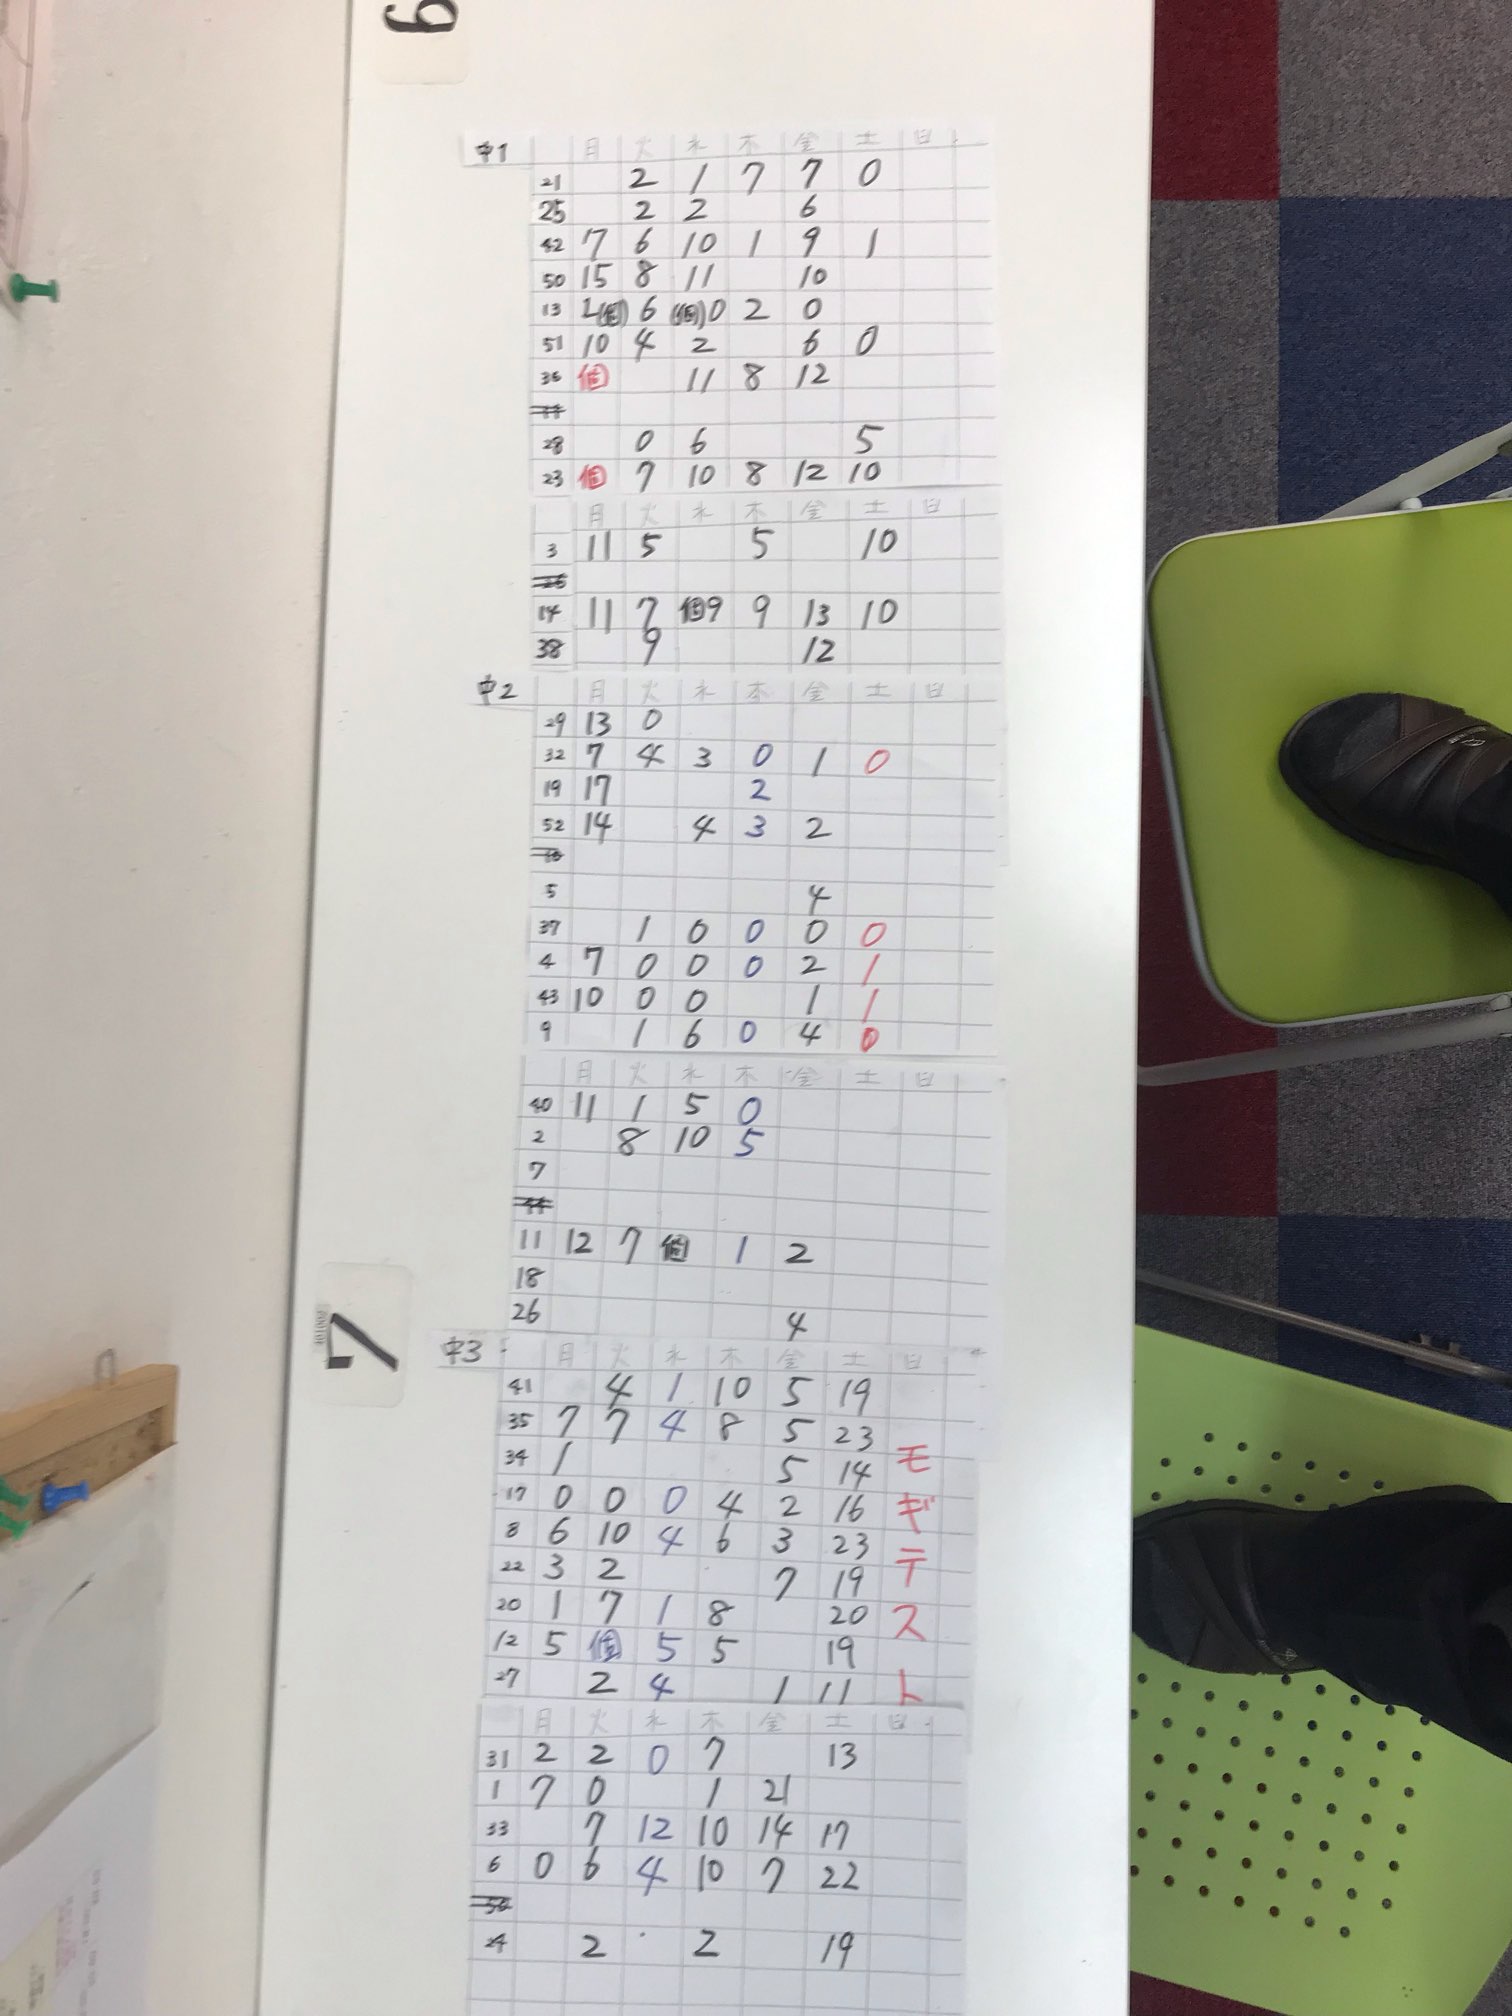 6
中1 月 火 水 木 金 土 日
21 2 1 7 7 0
25 2 2 6
42 7 6 10 1 9 1
50 15 8 11 10
13 個 6 個 0 2 0
51 10 4 2 6 0
36 個 11 8 12
28 0 6 5
23 個 7 10 8 12 10
月 火 水 木 金 土 日
3 11 5 5 10
14 11 7 個9 9 13 10
38 9 12
中2 月 火 水 木 金 土 日
29 13 0
32 7 4 3 0 1 0
19 17 2
52 14 4 3 2
5 4
37 1 0 0 0 0
4 7 0 0 0 2 1
43 10 0 0 1 1
9 1 6 0 4 0
月 火 水 木 金 土 日
40 11 1 5 0
2 8 10 5
7
11 12 7 個 1 2
18
26 4
7
中3 月 火 水 木 金 土 日
41 4 1 10 5 19
35 7 7 4 8 5 23
34 1 5 14
17 0 0 0 4 2 16
8 6 10 4 6 3 23
22 3 2 7 19
20 1 7 1 8 20
12 5 個 5 5 19
27 2 4 1 11
モギテスト
月 火 水 木 金 土 日
31 2 2 0 7 13
1 7 0 1 21
33 7 12 10 14 17
6 0 6 4 10 7 22
24 2 2 19